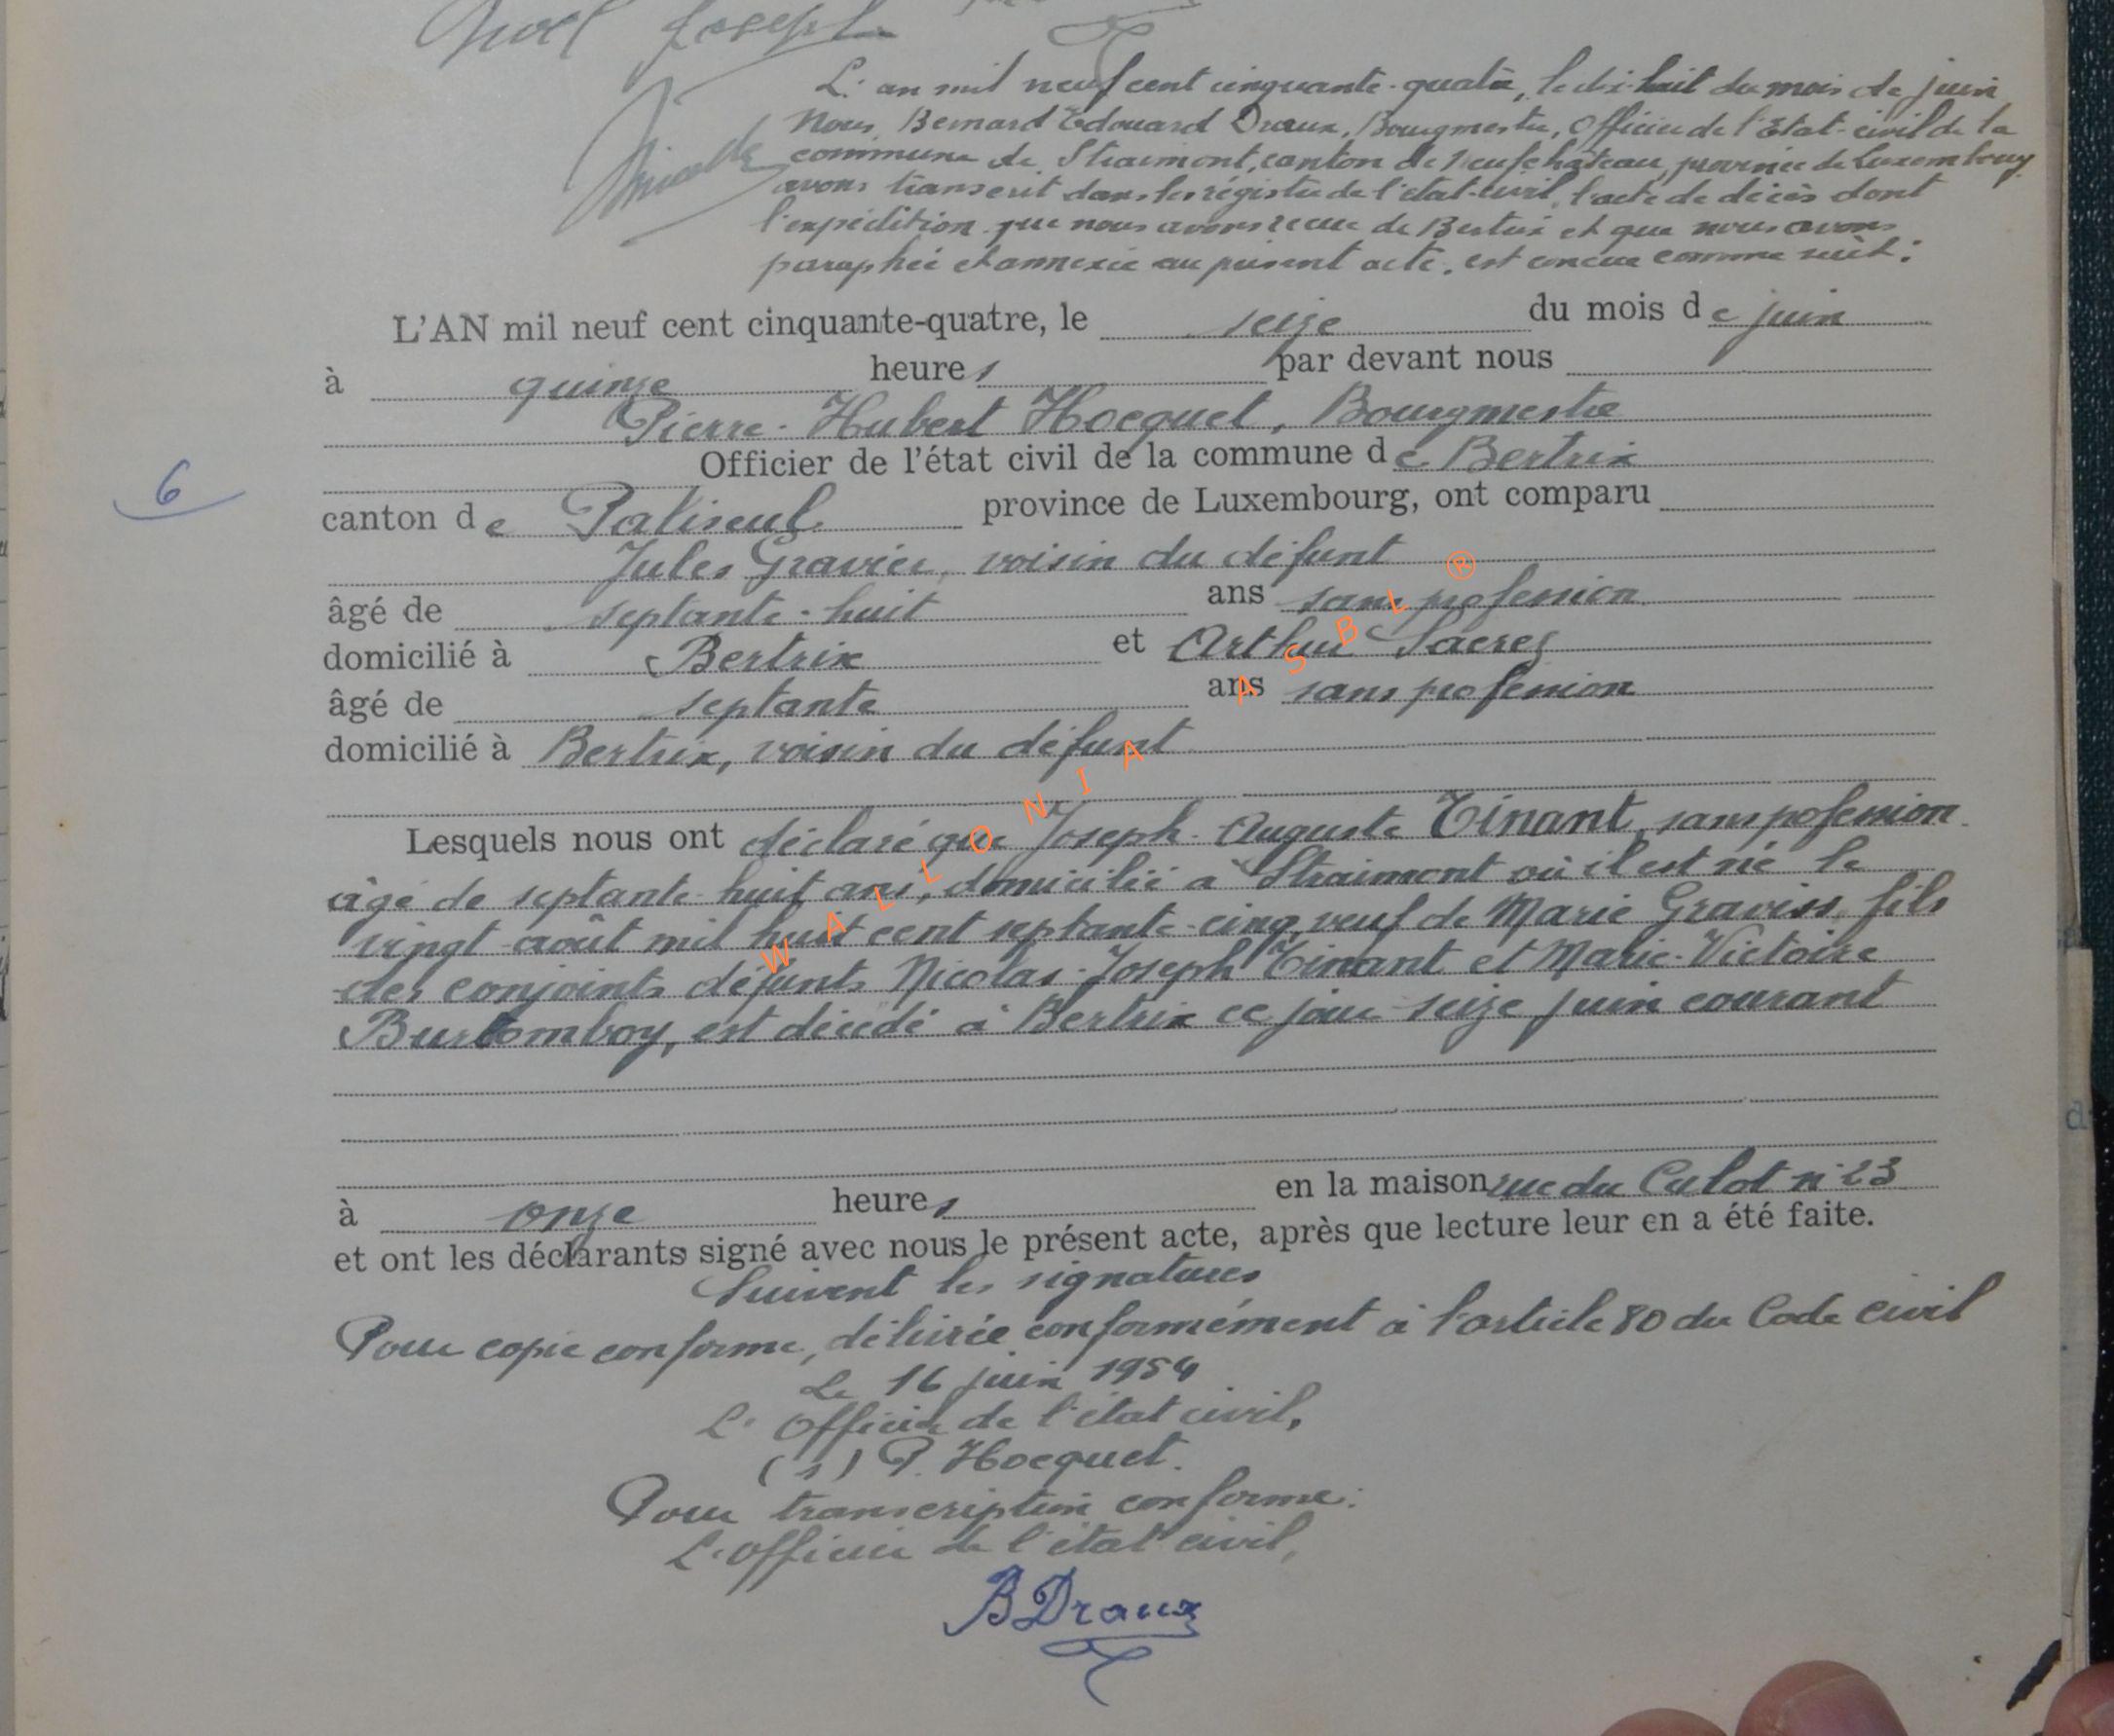 Noël Joseph
L'an mil neuf cent cinquante-quatre, le dix-huit du mois de juin
Nous, Bernard Edouard Draux, Bourgmestre, Officier de l'Etat-civil de la
commune de Straimont, canton de Neufchâteau, province de Luxembourg
avons transcrit dans les régistre de l'état-civil, l'acte de décès dont
l'expédition que nous avons reçue de Bertrix et que nous avons
paraphée et annexée au présent acte, est conçue comme suit :
L'AN mil neuf cent cinquante-quatre, le seize du mois de juin
à quinze heures par devant nous
Pierre-Hubert Hocquet, Bourgmestre
Officier de l'état civil de la commune de Bertrix
6
canton de Paliseul province de Luxembourg, ont comparu
Jules Gravier, voisin du défunt
âgé de septante-huit ans sans profession
domicilié à Bertrix et Arthur Sacrez
âgé de septante ans sans profession
domicilié à Bertrix, voisin du défunt
Lesquels nous ont déclaré que Joseph-Auguste Tinant, sans pofession
âgé de septante-huit ans, domicilié à Straimont où il est né le
vingt août mil huit cent septante-cinq, veuf de Marie Graviss, fils
des conjoints défunts Nicolas-Joseph Tinant et Marie-Victoire
Burtomboy, est décédé à Bertrix ce jour seize juin courant
à onze heures en la maison rue du Culot n° 23
et ont les déclarants signé avec nous le présent acte, après que lecture leur en a été faite.
Suivent les signatures
Pour copie conforme, délivrée conformément à l'article 80 du Code civil
Le 16 juin 1954
L'Officier de l'état civil,
(s) P. Hocquet.
Pour transcription conforme :
L'officier de l'état civil,
B Draux
WALLONIA ASBL ®